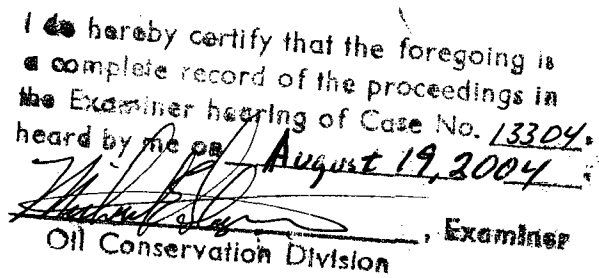 I do hereby certify that the foregoing is
a complete record of the proceedings in
the Examiner hearing of Case No. 13304.
heard by me on August 19, 2004.
, Examiner
Oil Conservation Division